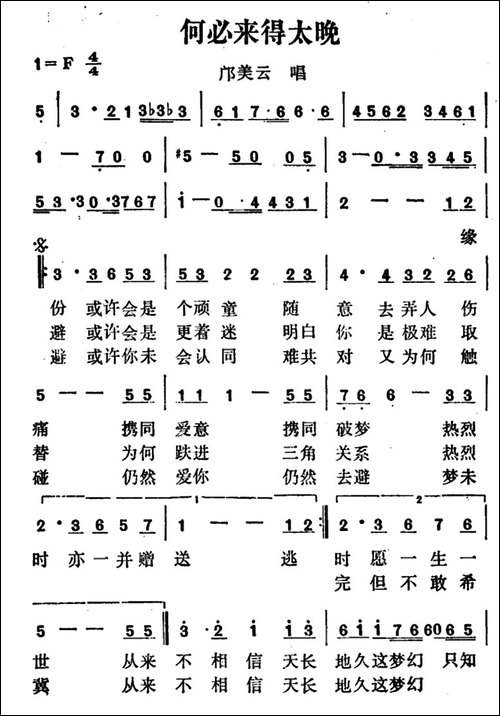 何必来得太晚
1=F 4/4
邝美云 唱
5 | 3 · 213♭3♭3 | 617·66·6 | 4562 3461 |
1 — 70 0 | #5 — 50 05 | 3—0·3345 |
53·30·3767 | i—0·4431 | 2 — — 12 |
缘
3·3653 | 53 2 2 23 | 4·432 26 |
份 或许会是 个顽童 随 意 去弄人 伤
避 或许会是 更着迷 明白 你 是极难 取
避 或许你未 会认同 难共 对 又为何 触
5 — — 55 | 11 1 — 55 | 76 6 — 33 |
痛 携同 爱意 携同 破梦 热烈
替 为何 跌进 三角 关系 热烈
碰 仍然 爱你 仍然 去避 梦未
1 2
2·36 57 | 1 — — 12 | 2·36 76 |
时亦一并赠 送 逃 时愿一生一
完但不敢希
5 — — 55 | 3·2i i3 | 6iii766065 |
世 从来 不相信天长 地久这梦幻 只知
冀 从来 不相信天长 地久这梦幻